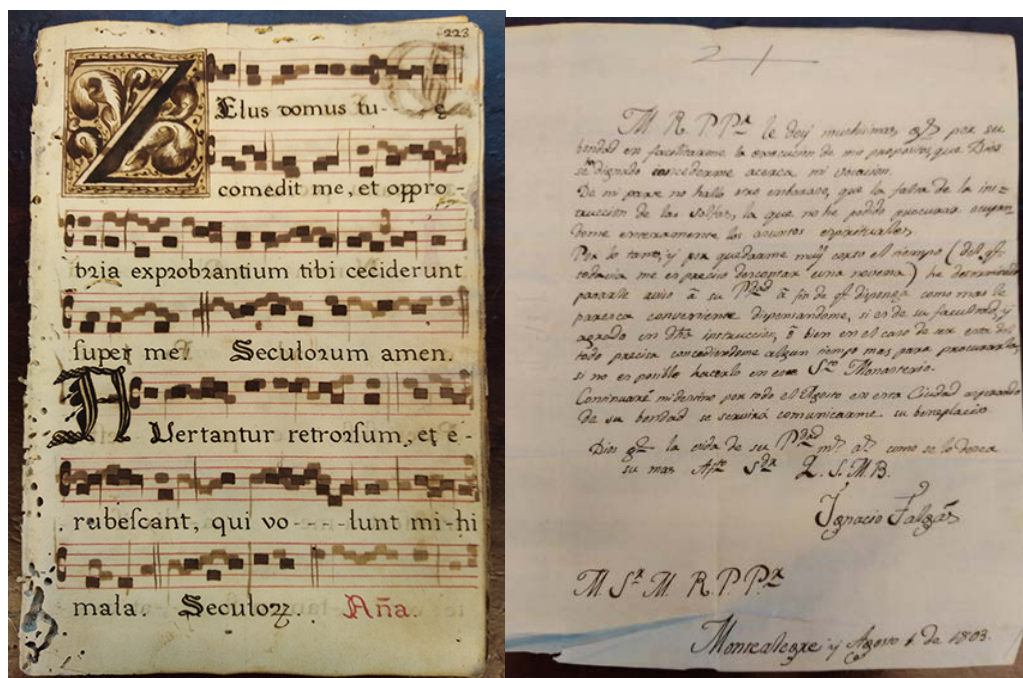 223
ZElus domus tu--e
comedit me, et oppro-
bria exprobrantium tibi ceciderunt
super me. Seculorum amen.
AVertantur retrorsum, et e-
rubescant, qui vo----lunt mi-hi
mala. Seculorz. Aña.
M. R. P. Pᵒʳ le doy muchisimas gˢ por su
bondad en facilitarme la execucion de mis propositos, que Dios
se ha dignado concederme acerca mi vocacion.
De mi parte no hallo otro embarazo, que la falta de la ins-
truccion de las solfas, la que no he podido procurar ocupan-
dome enteramente los asuntos espirituales.
Por lo tanto, y por quedarme muy corto el tiempo (del qᵉ
todavia me es preciso descontar una novena) he determinado
pasarle aviso á su Pᵈᵃᵈ á fin de qᵉ disponga como mas le
paresca conveniente dispensandome, si es de su facultad, y
agrado en dha instruccion, ó bien en el caso de ser esta del
todo precisa concediendome algun tiempo mas para procurarla,
si no es posible hacerlo en este Sᵗᵒ Monasterio.
Continuaré mi destino por todo el Agosto en esta Ciudad esperando
de su bondad se servirá comunicarme su beneplacito.
Dios gᵉ la vida de su Pᵈᵃᵈ mˢ aˢ como se lo desea
su mas Afᵗᵒ Sᵈᵒʳ Q. S. M. B.
Ignacio Falgás
M. Sʳ M. R. P. Pᵒʳ
Montealegre y Agosto 1 de 1803.